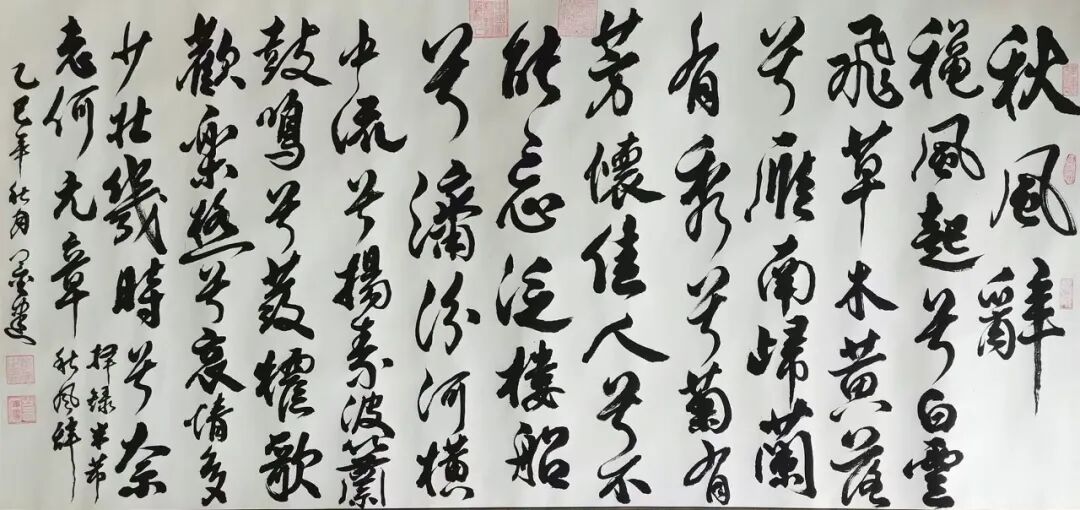 秋風辭
穐風起兮白雲
飛草木黄落
兮雁南歸蘭
有秀兮菊有
芳懷佳人兮不
能忘泛樓船
兮濟汾河横
中流兮揚素波簫
鼓鳴兮發櫂歌
歡樂極兮哀情多
少壯幾時兮奈
老何元章
擇錄米芾
秋風辭
乙巳年秋月